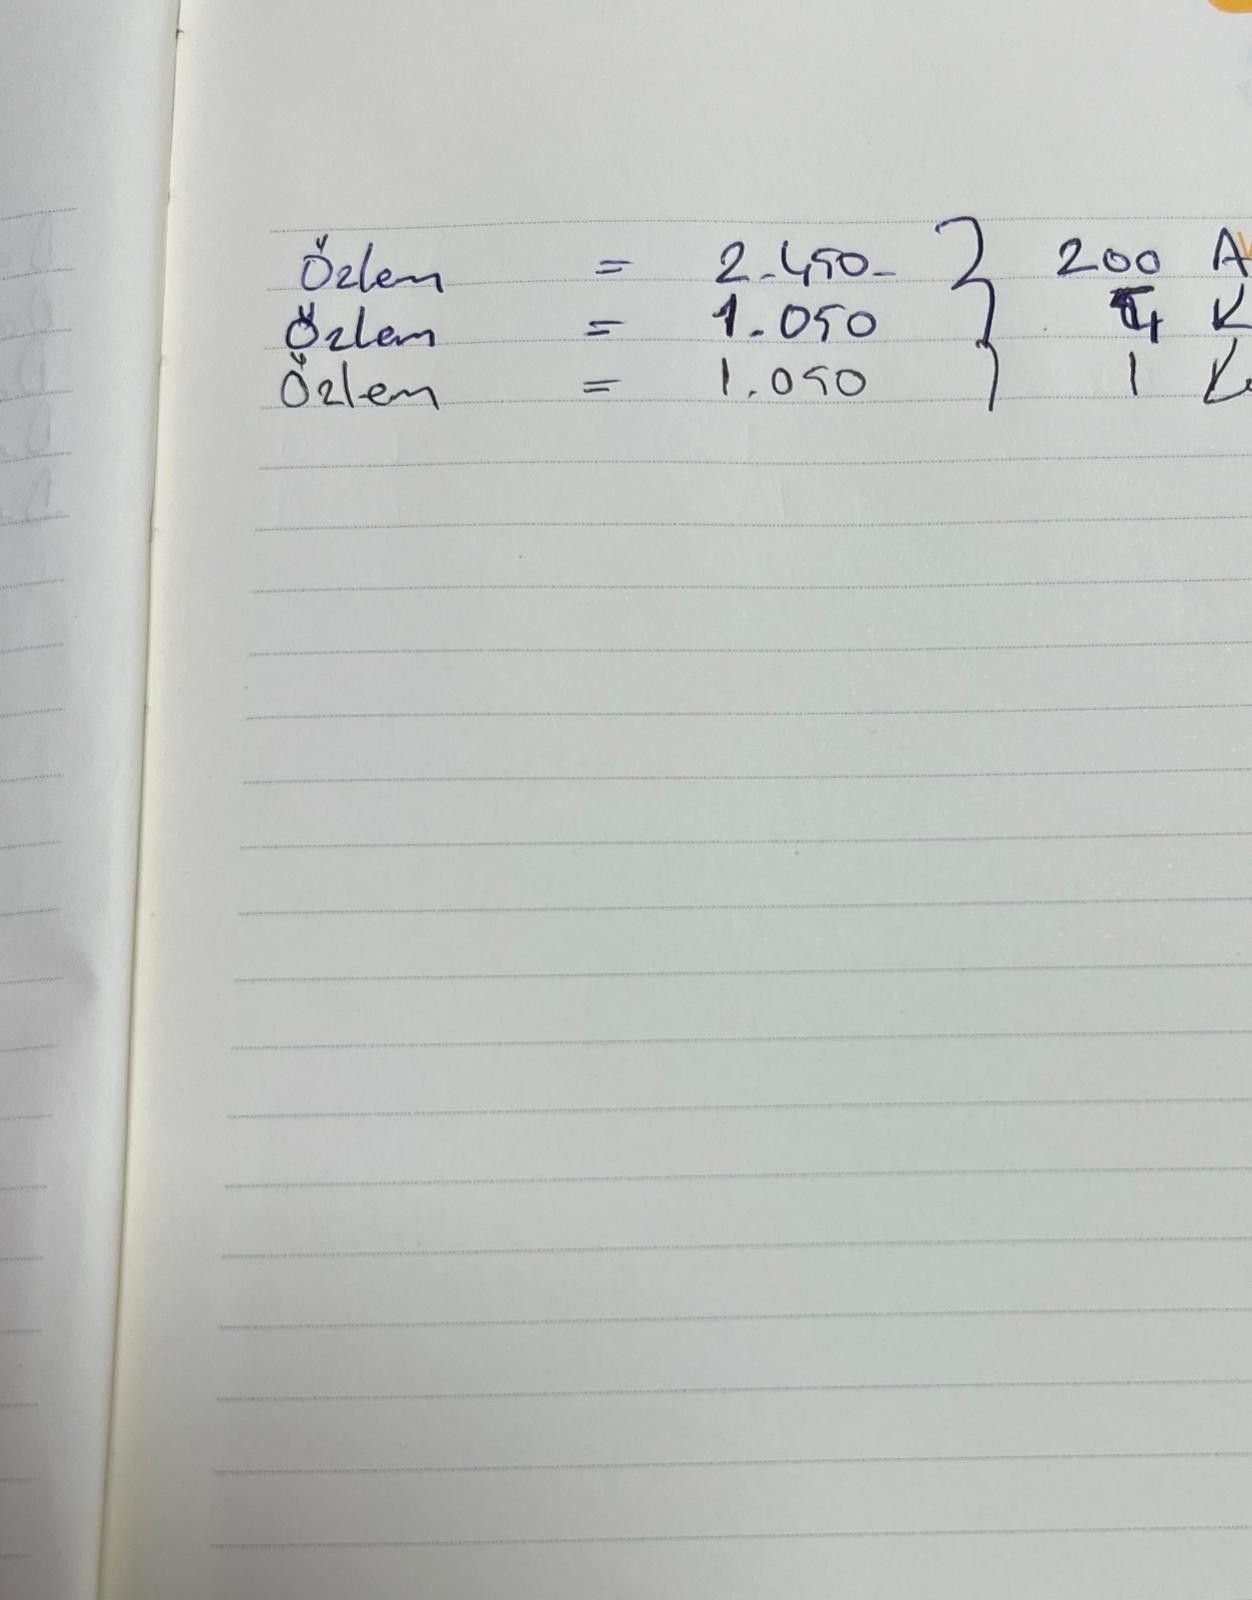 Özlem = 2.450- } 200 A
Özlem = 1.050 } 4 K
Özlem = 1.050 } 1 K